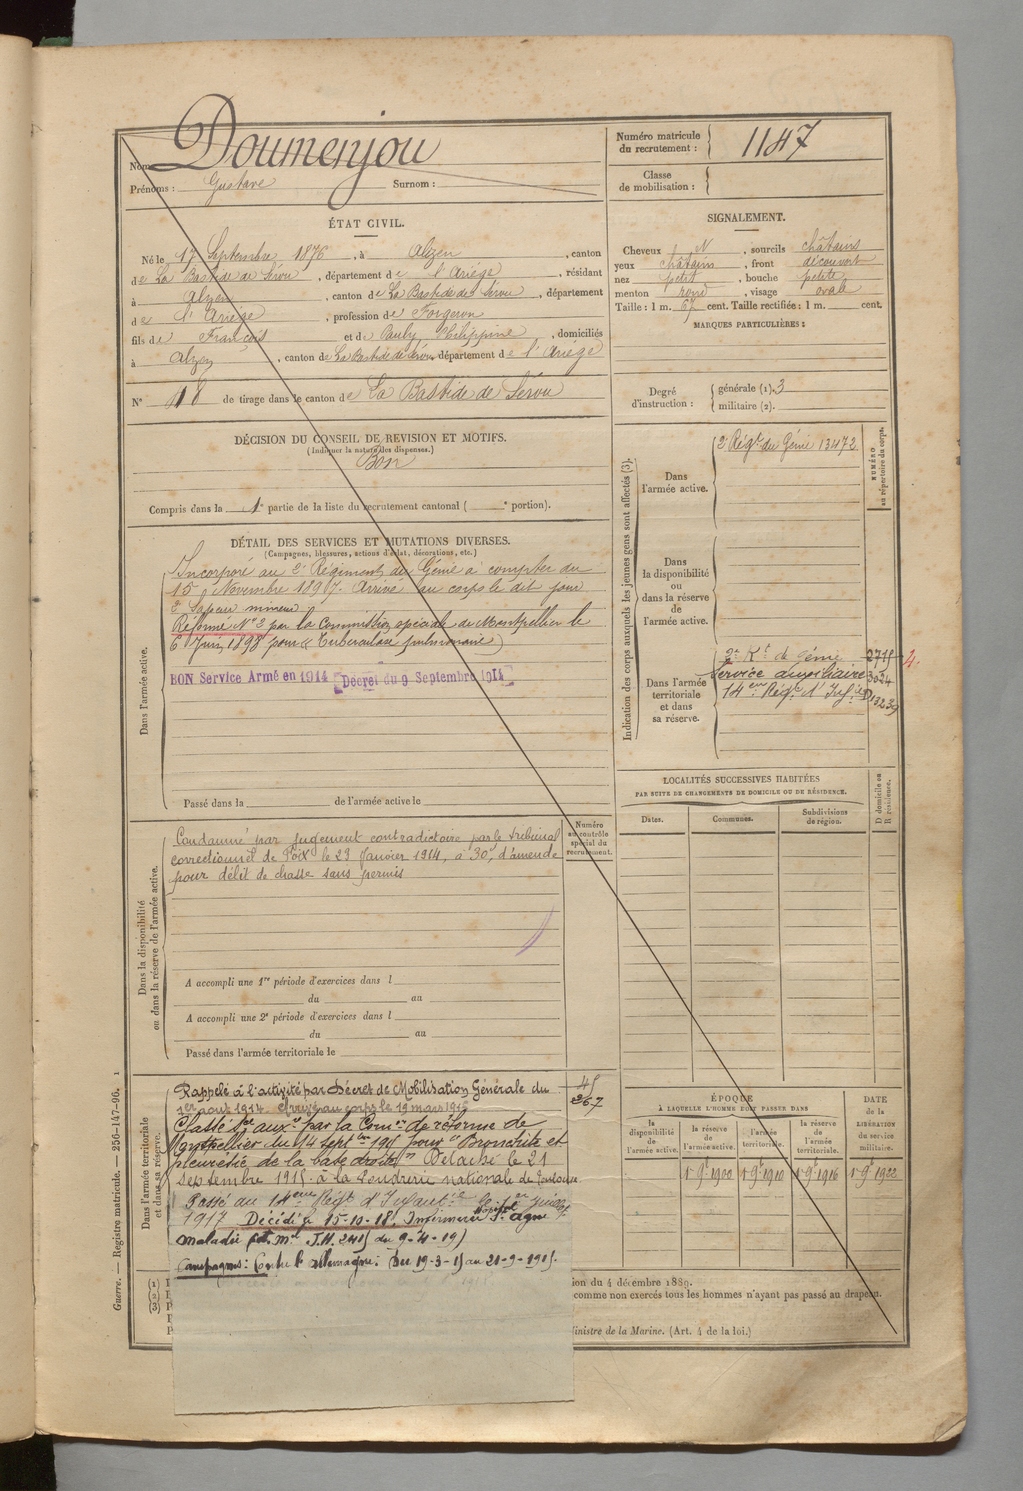 Nom : Doumenjou
Prénoms : Gustave Surnom :
Numéro matricule du recrutement : 1147
Classe de mobilisation :
ÉTAT CIVIL.
Né le 17 Septembre 1876, à Alzen, canton
de La Bastide de Sérou, département de l'Ariége, résidant
à Alzen, canton de La Bastide de Sérou, département
de l'Ariége, profession de Forgeron
fils de François et de Pauly Philippine, domiciliés
à Alzen, canton de La Bastide de Sérou, département de l'Ariége
N° 18 de tirage dans le canton de La Bastide de Sérou
SIGNALEMENT.
Cheveux N, sourcils châtains
yeux châtains, front découvert
nez petit, bouche petite
menton rond, visage ovale
Taille : 1 m. 67 cent. Taille rectifiée : 1 m. cent.
MARQUES PARTICULIÈRES :
Degré d'instruction : générale (1). 3
militaire (2).
DÉCISION DU CONSEIL DE REVISION ET MOTIFS.
(Indiquer la nature des dispenses.)
Bon
Compris dans la 1e partie de la liste du recrutement cantonal ( e portion).
DÉTAIL DES SERVICES ET MUTATIONS DIVERSES.
(Campagnes, blessures, actions d'éclat, décorations, etc.)
Dans l'armée active.
Incorporé au 2e Régiment du Génie à compter du
15 Novembre 1897. Arrivé au corps le dit jour
2e Sapeur mineur
Réformé N°2 par la Commission spéciale de Montpellier le
6 Juin 1898 pour (Tuberculose pulmonaire)
BON Service Armé en 1914 Décret du 9 Septembre 1914
Passé dans la de l'armée active le
Indication des corps auxquels les jeunes gens sont affectés (3).
NUMÉRO au répertoire du corps.
Dans l'armée active.
2e Régt du Génie 13472
Dans la disponibilité ou dans la réserve de l'armée active.
Dans l'armée territoriale et dans sa réserve.
2e Rt de Génie 2715
Service auxiliaire 3034
14eme Régt d'Infie 13239
LOCALITÉS SUCCESSIVES HABITÉES
PAR SUITE DE CHANGEMENTS DE DOMICILE OU DE RÉSIDENCE.
Dates. Communes. Subdivisions de région. D domicile ou R résidence.
Dans la disponibilité ou dans la réserve de l'armée active.
Numéro au contrôle spécial du recrutement.
Condamné par jugement contradictoire par le tribunal
correctionnel de Foix le 23 Janvier 1914, à 30f d'amende
pour délit de chasse sans permis
A accompli une 1re période d'exercices dans l
du au
A accompli une 2e période d'exercices dans l
du au
Passé dans l'armée territoriale le
Dans l'armée territoriale et dans sa réserve.
Rappelé à l'activité par Décret de Mobilisation Générale du
1er aout 1914. Arrivé au corps le 19 mars 1915
Classé Sce auxre par la Comon de réforme de
Montpellier du 14 septbre 1915 pour "Bronchite et
pleurésie de la base droite" Détaché le 21
septembre 1915 à la Poudrerie nationale de Toulouse
Passé au 14eme Régt d'Infanterie le 1er Juillet
1917 Décédé le 15-10-18, Hopital St agne
maladie
Campagnes : Contre l'Allemagne : Du 19-3-15 au 21-9-1915.
267
ÉPOQUE
À LAQUELLE L'HOMME DOIT PASSER DANS
la disponibilité de l'armée active. la réserve de l'armée active. l'armée territoriale. la réserve de l'armée territoriale.
DATE de la LIBÉRATION du service militaire.
1er 9bre 1900 1er 9bre 1910 1er 9bre 1916 1er 9bre 1922
(1)
(2)
(3)
ion du 4 décembre 1889.
comme non exercés tous les hommes n'ayant pas passé au drapeau.
inistre de la Marine. (Art. 4 de la loi.)
Guerre. — Registre matricule. — 256-147-96. 1